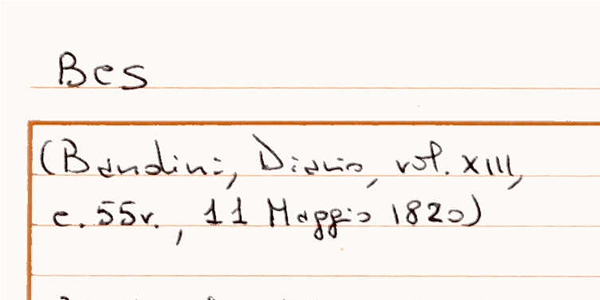 Bes
(Bandini, Diario, vol. XIII,
c. 55r., 11 Maggio 1820)